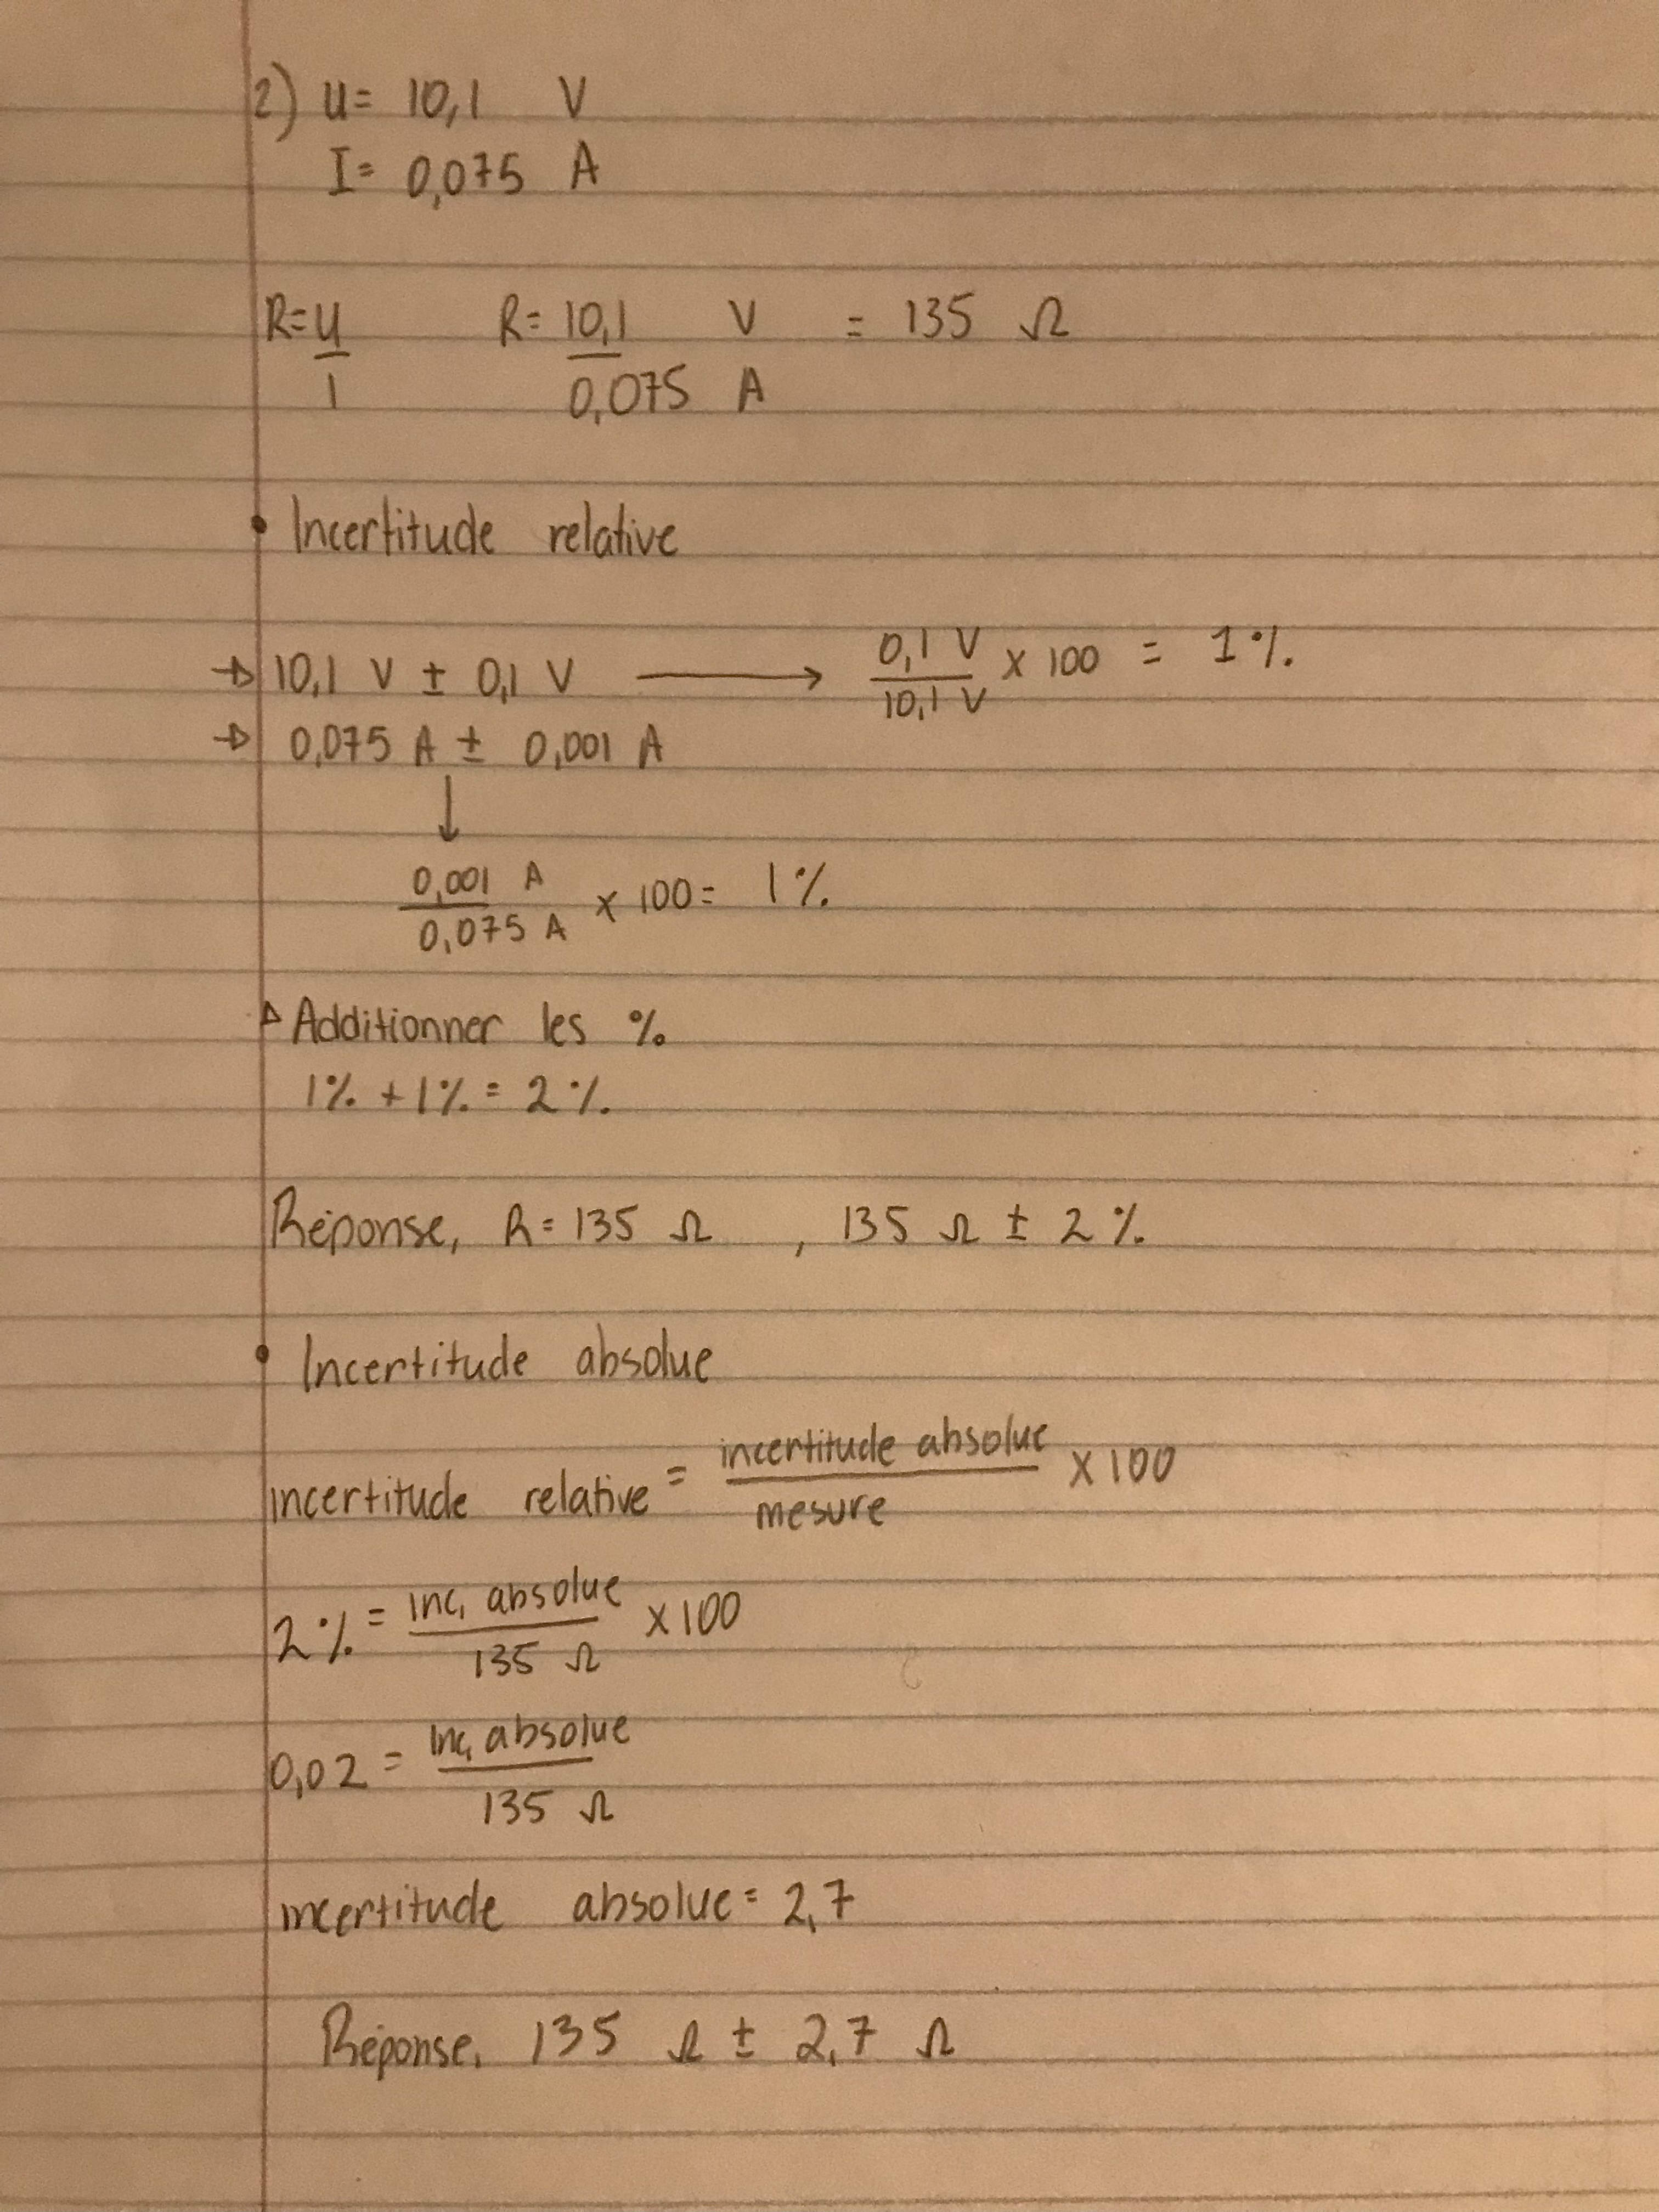 2) U= 10,1 V
I= 0,075 A
R=U/I R= 10,1 V / 0,075 A = 135 Ω
• Incertitude relative
→ 10,1 V ± 0,1 V ⟶ 0,1 V / 10,1 V x 100 = 1%
→ 0,075 A ± 0,001 A
↓
0,001 A / 0,075 A x 100 = 1%
▷ Additionner les %
1% + 1% = 2%
Réponse, R = 135 Ω , 135 Ω ± 2%
• Incertitude absolue
incertitude relative = incertitude absolue / mesure x 100
2% = inc, absolue / 135 Ω x 100
0,02 = inc, absolue / 135 Ω
incertitude absolue = 2,7
Réponse, 135 Ω ± 2,7 Ω